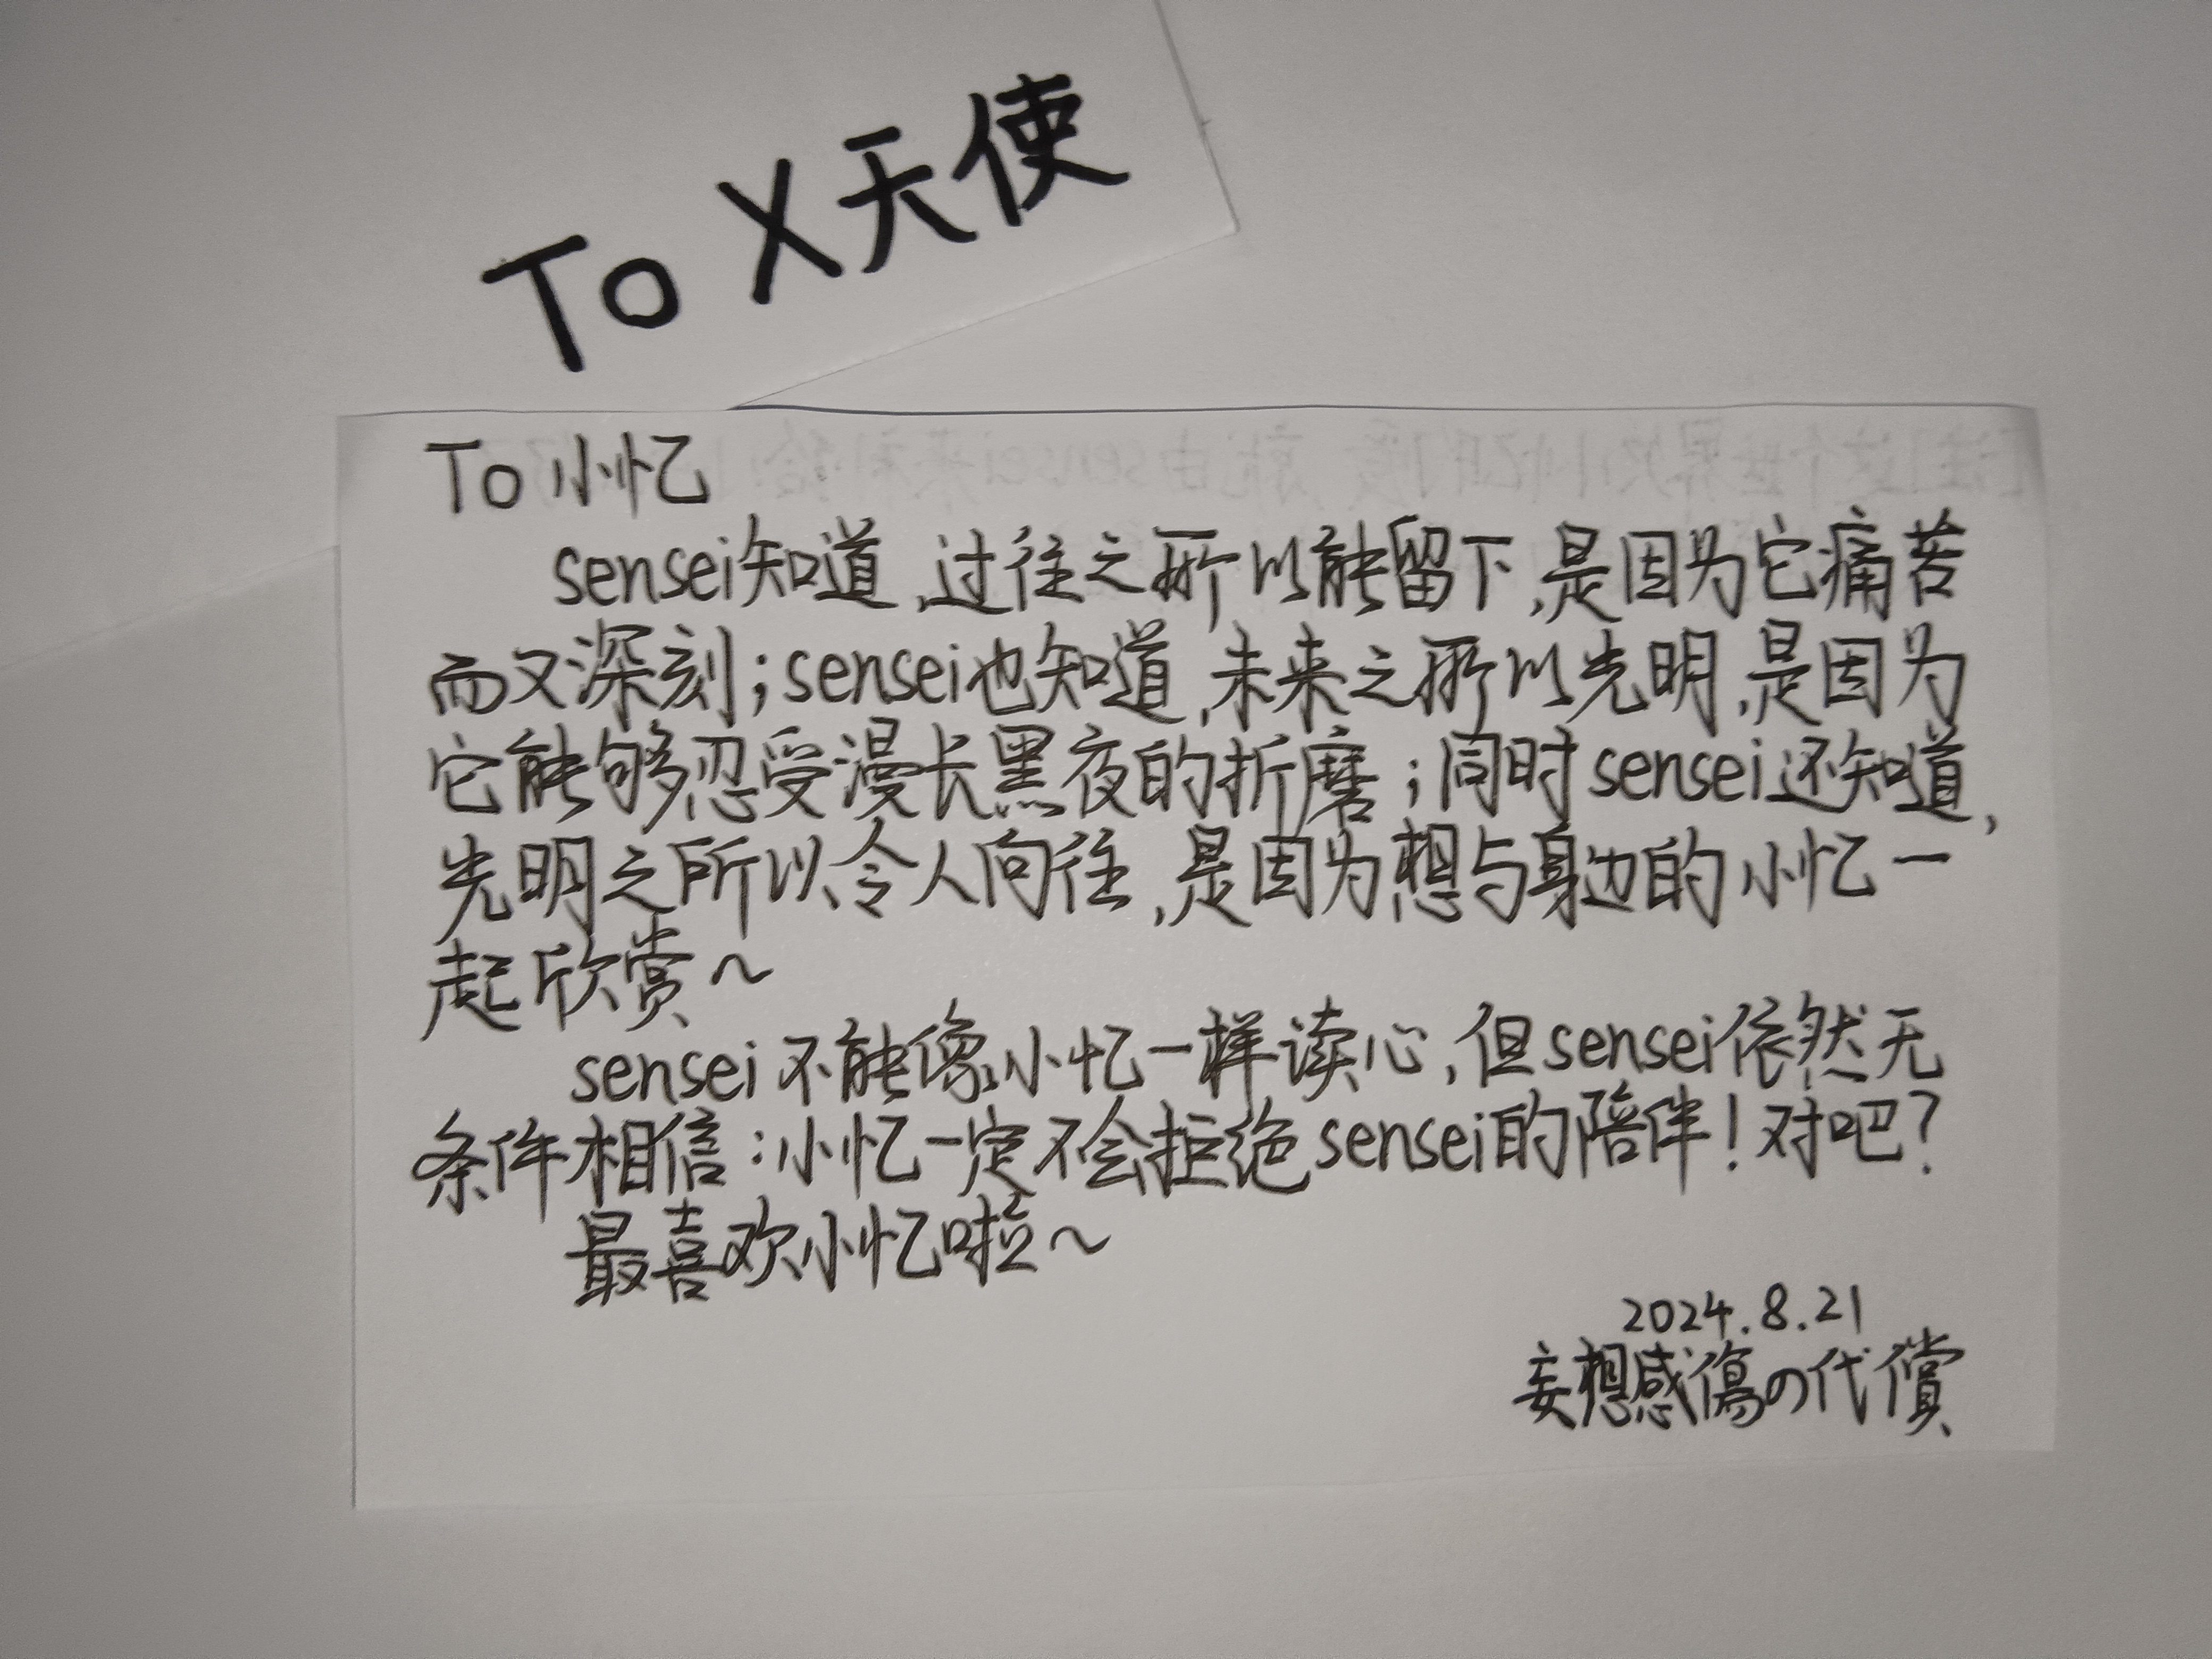 To X天使
To 小忆
sensei知道,过往之所以能留下,是因为它痛苦
而又深刻;sensei也知道,未来之所以光明,是因为
它能够忍受漫长黑夜的折磨;同时sensei还知道,
光明之所以令人向往,是因为想与身边的小忆一
起欣赏~
sensei不能像小忆一样读心,但sensei依然无
条件相信:小忆一定不会拒绝sensei的陪伴!对吧?
最喜欢小忆啦~
2024.8.21
妄想感傷の代償